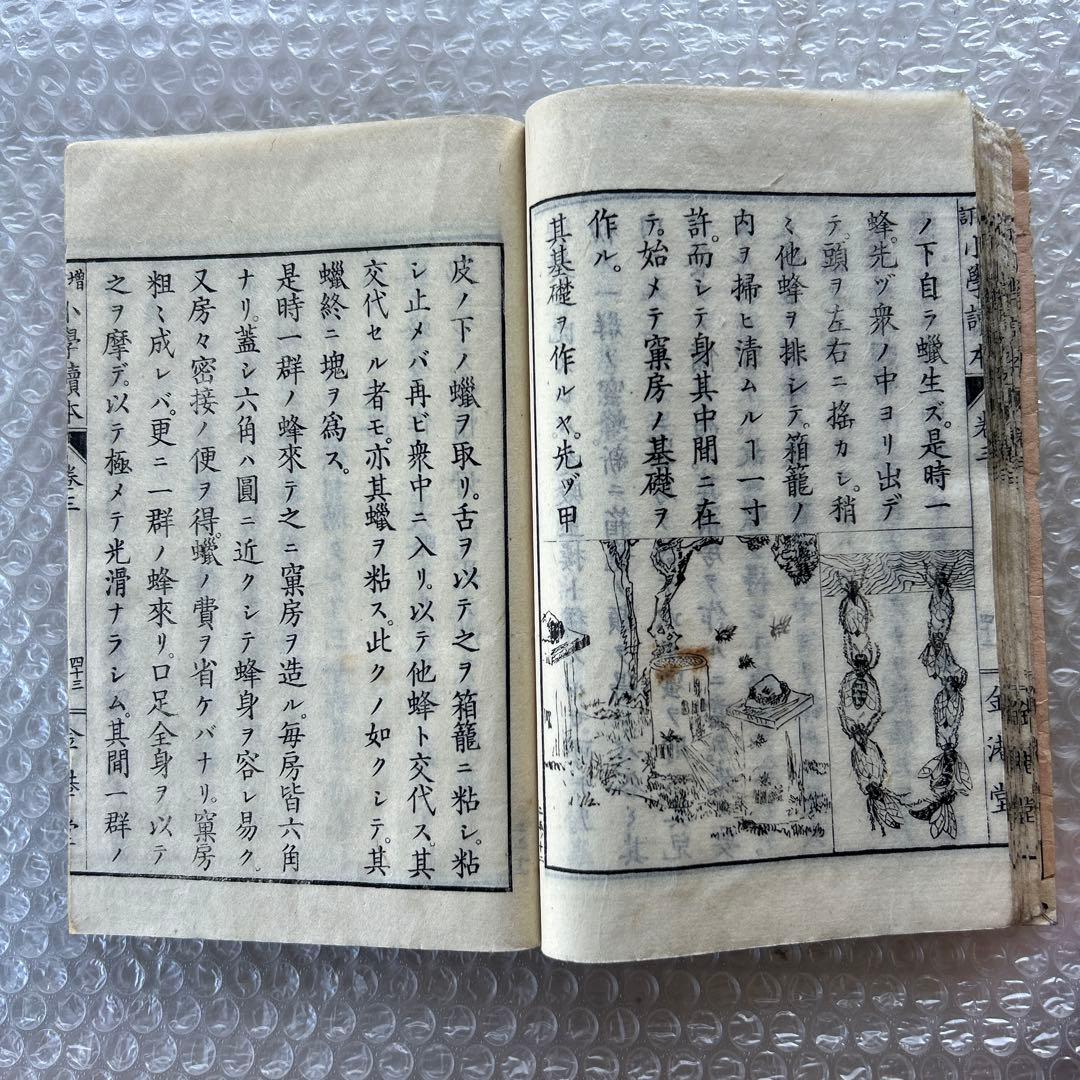 訂小學讀本
卷三
金港堂
ノ下自ラ蠟生ズ。是時一
蜂。先ヅ衆ノ中ヨリ出デ
テ。頭ヲ左右ニ搖カシ。稍
ミ他蜂ヲ排シテ。箱籠ノ
内ヲ掃ヒ清ムルヿ一寸
許。而シテ身其中間ニ在
テ。始メテ窠房ノ基礎ヲ
作ル。一群ノ蜜蜂新ニ箱
其基礎ヲ作ルヤ。先ヅ甲
皮ノ下ノ蠟ヲ取リ。舌ヲ以テ之ヲ箱籠ニ粘シ。粘
シ止メバ再ビ衆中ニ入リ。以テ他蜂ト交代ス。其
交代セル者モ。亦其蠟ヲ粘ス。此クノ如クシテ。其
蠟終ニ塊ヲ爲ス。
是時一群ノ蜂來テ之ニ窠房ヲ造ル。毎房皆六角
ナリ。蓋シ六角ハ圓ニ近クシテ蜂身ヲ容レ易ク。
又房々密接ノ便ヲ得。蠟ノ費ヲ省ケバナリ。窠房
粗ミ成レバ。更ニ一群ノ蜂來リ。口足全身ヲ以テ
之ヲ摩デ。以テ極メテ光滑ナラシム。其間一群ノ
増小學讀本
卷三
四十三
金港堂